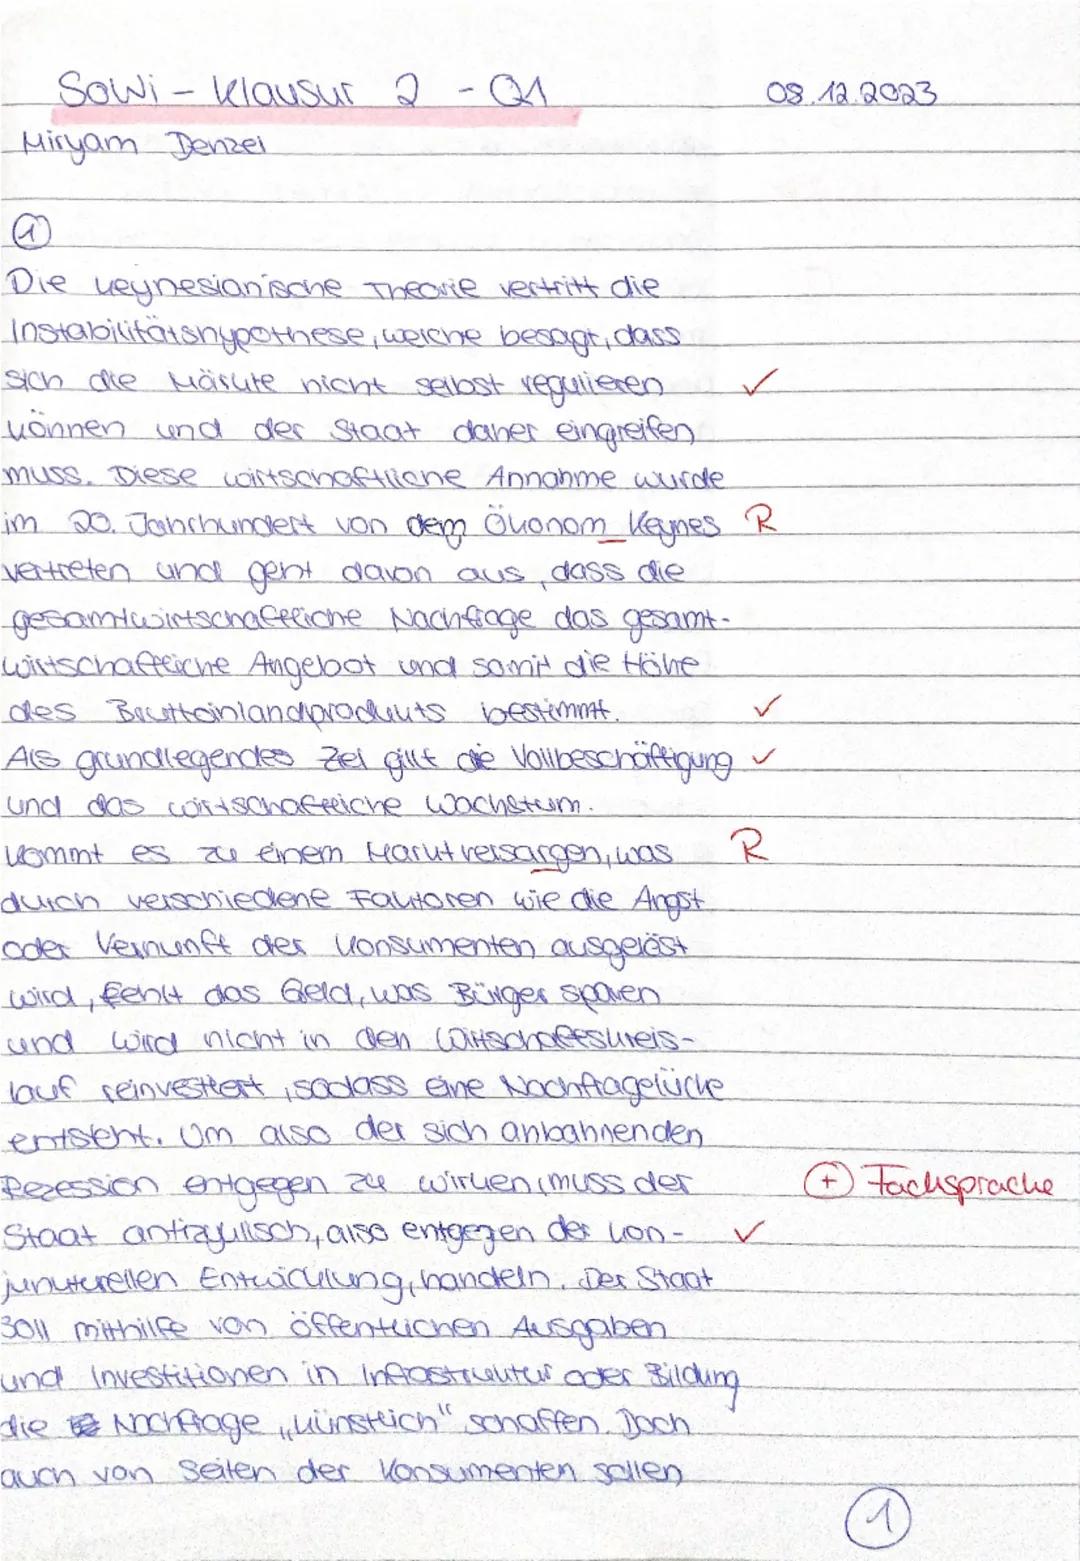 SoWi - Klausur 2 - Q1 08.12.2023
Miryam Denzel
①
Die keynesianische Theorie vertritt die
Instabilitätshypothese, welche besagt, dass
sich die Märkte nicht selbst regulieren ✓
können und der Staat daher eingreifen
muss. Diese wirtschaftliche Annahme wurde
im 20. Jahrhundert von dem Ökonom Keynes R
vertreten und geht davon aus, dass die
gesamtwirtschaftliche Nachfrage das gesamt-
wirtschaftliche Angebot und somit die Höhe
des Bruttoinlandprodukts bestimmt. ✓
Als grundlegendes Ziel gillt die Vollbeschäftigung ✓
und das wirtschaftliche Wachstum.
Kommt es zu einem Marktversargen, was R
durch verschiedene Faktoren wie die Angst
oder Vernunft der Konsumenten ausgelöst
wird, fehlt das Geld, was Bürger sparen
und wird nicht in den Wirtschaftskreis-
lauf reinvestiert, sodass eine Nachfragelücke
entsteht. Um also der sich anbahnenden
Rezession entgegen zu wirken, muss der ⊕ Fachsprache
Staat antizyklisch, also entgegen der kon- ✓
junkturellen Entwicklung, handeln. Der Staat
soll mithilfe von öffentlichen Ausgaben
und Investitionen in Infrastruktur oder Bildung
die Nachfrage „künstlich" schaffen. Doch
auch von Seiten der Konsumenten sollen
①